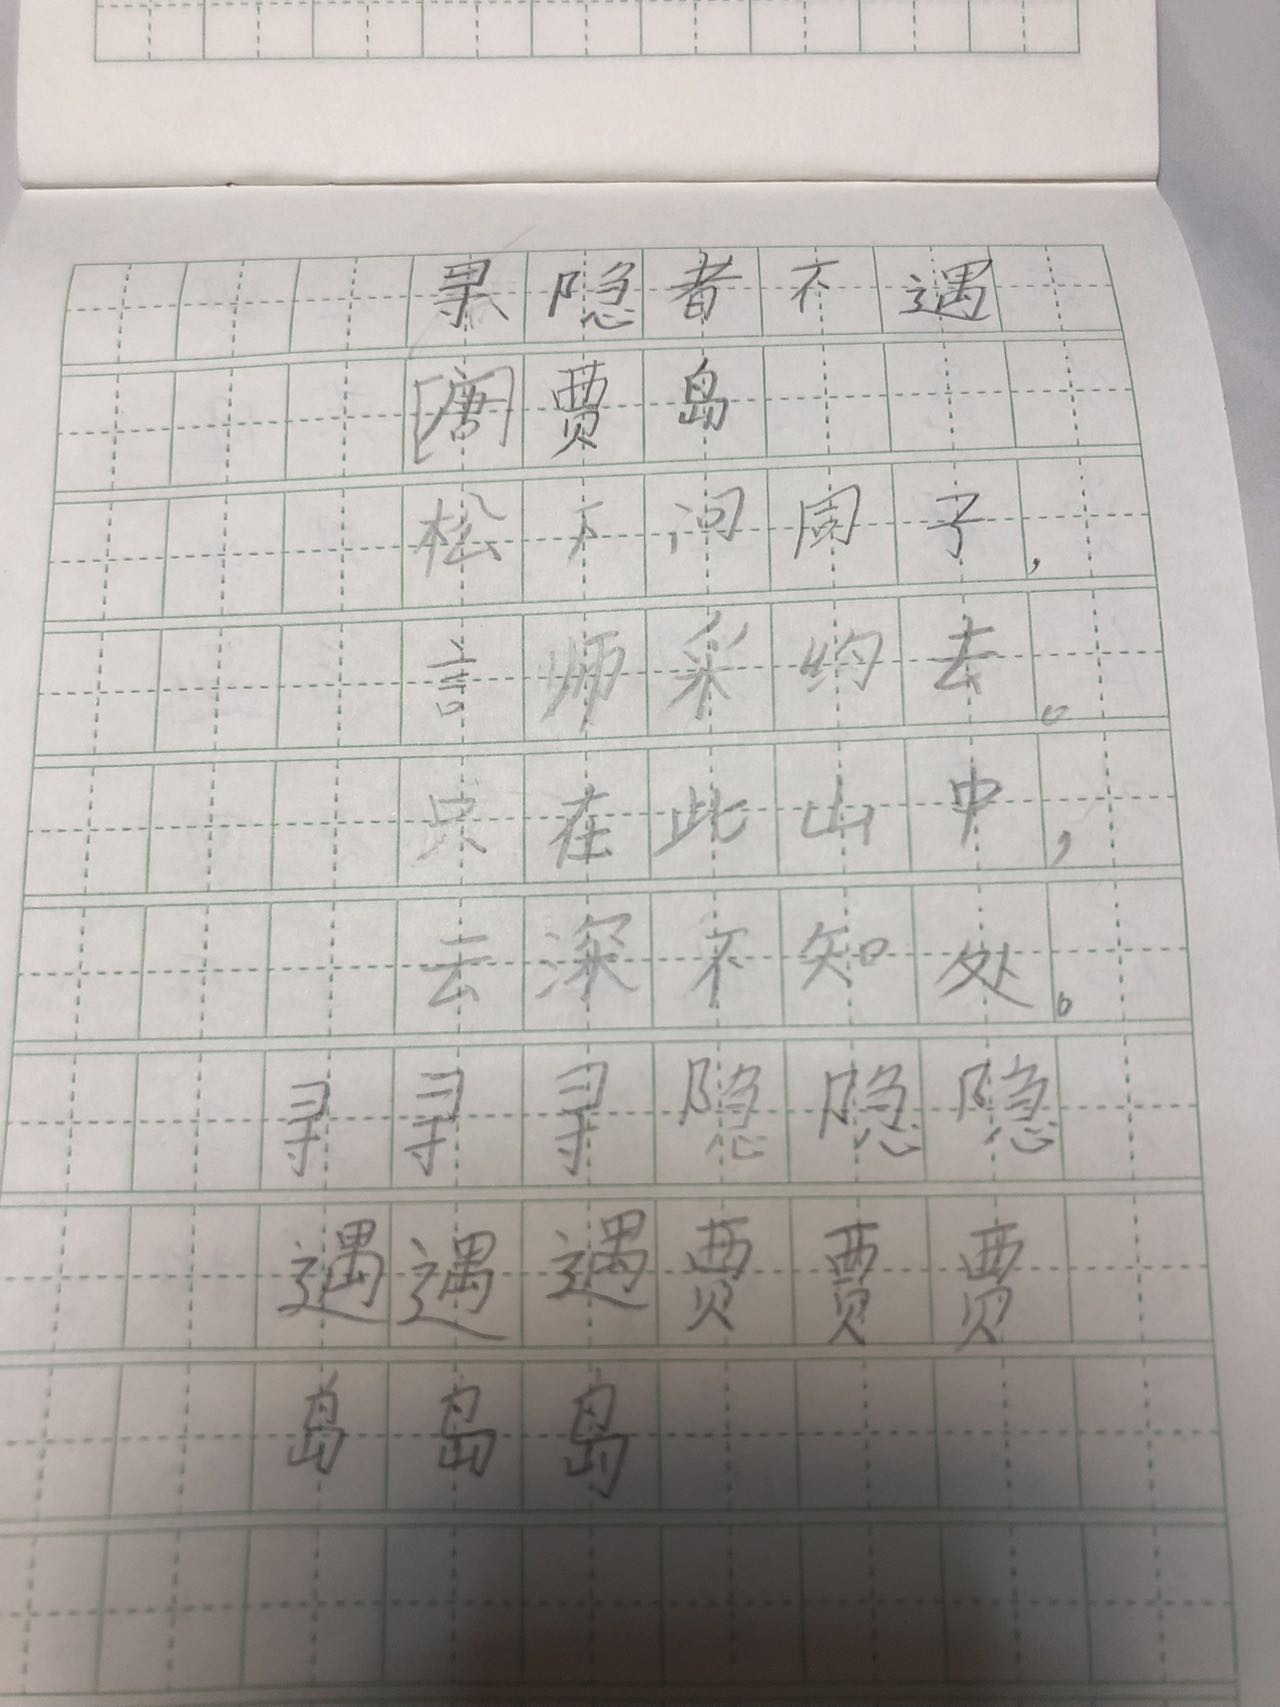 寻隐者不遇
[唐]贾岛
松下问同子，
言师采约去。
只在此山中，
云深不知处。
寻寻寻隐隐隐
遇遇遇贾贾贾
岛岛岛